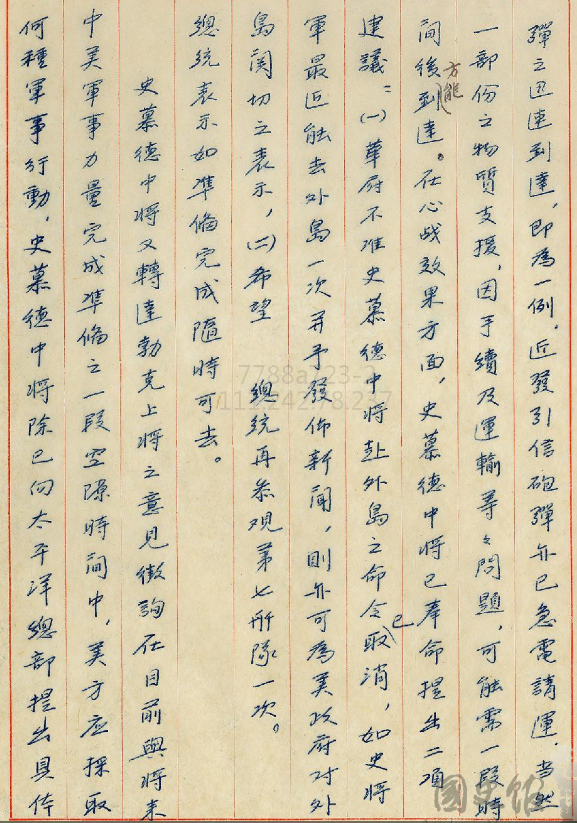 彈之迅速到達，即為一例，近發引信砲彈亦已急電請運，當然
一部份之物質支援，因手續及運輸等々問題，可能需一段時
間後方能到達。在心战效果方面，史慕德中將已奉命提出二項
建議：(一)華府不准史慕德中將赴外島之命令已取消，如史將
軍最近能去外島一次並予發佈新聞，則亦可為美政府对外
島関切之表示，(二)希望　總統再参观第七艦隊一次。
總統表示如準備完成隨時可去。
史慕德中將又轉達勃克上將之意見徵詢在目前與將来
中美軍事力量完成準備之一段空隙時间中，美方应採取
何種軍事行動，史慕德中將除已向太平洋總部提出具体
國史館